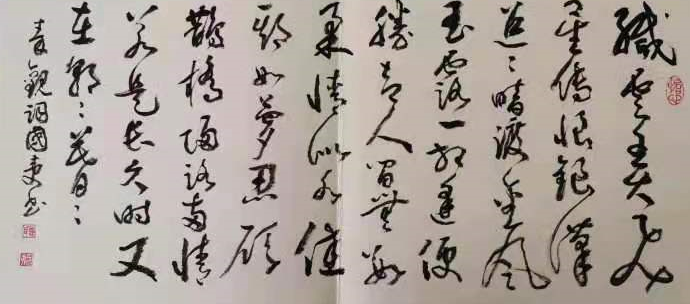 纖雲弄巧飛
星傳恨銀漢
迢〻暗渡金風
玉露一相逢便
勝却人間無數
柔情似水佳
期如夢忍顧
鵲橋歸路兩情
若是長久時又
在朝〻暮〻
秦觀詞國書